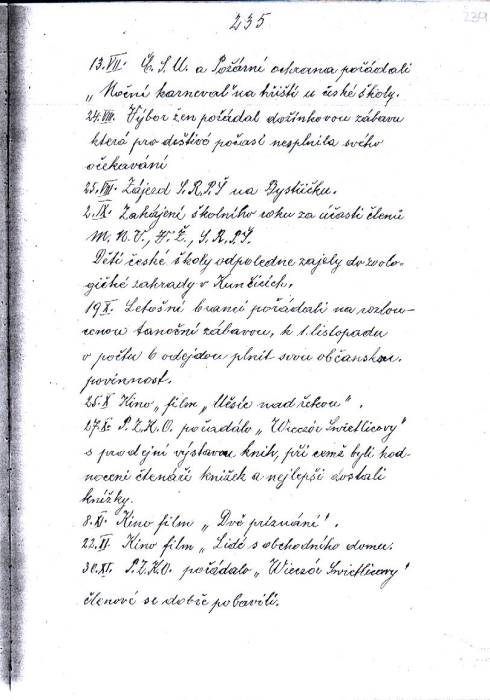 235
239
13.VII. Č.S.U. a Požární ochrana pořádali
„Noční karneval" na hřišti u české školy.
24.VIII. Výbor žen pořádal dožínkovou zábavu
která pro deštivé počasí nesplnila svého
očekávání
25.VIII. Zájezd S.R.P.Š na Bystřičku.
2.IX. Zahájení školního roku za účasti členů
M.N.V., V.Ž., S.R.P.Š.
Děti české školy odpoledne zajely do zoolo-
gické zahrady v Kunčicích.
19.X. Letošní branci pořádali na rozlou-
čenou taneční zábavou, k 1. listopadu
v počtu 6 odejdou plnit svou občanskou
povinnost.
25.X Kino, film „Měsíc nad řekou".
27.X. P.Z.K.O. pořádalo „Wieczór Świetlicowy"
s prodejní výstavou knih, při čemž byli hod-
noceni čtenáři knížek a nejlepší dostali
knížky.
8.XI. Kino film „Dvě přiznání".
22.XI. Kino film „Lidé s obchodního domu.
30.XI. P.Z.K.O. pořádalo „Wieczór Świetlicowy"
členové se dobře pobavili.